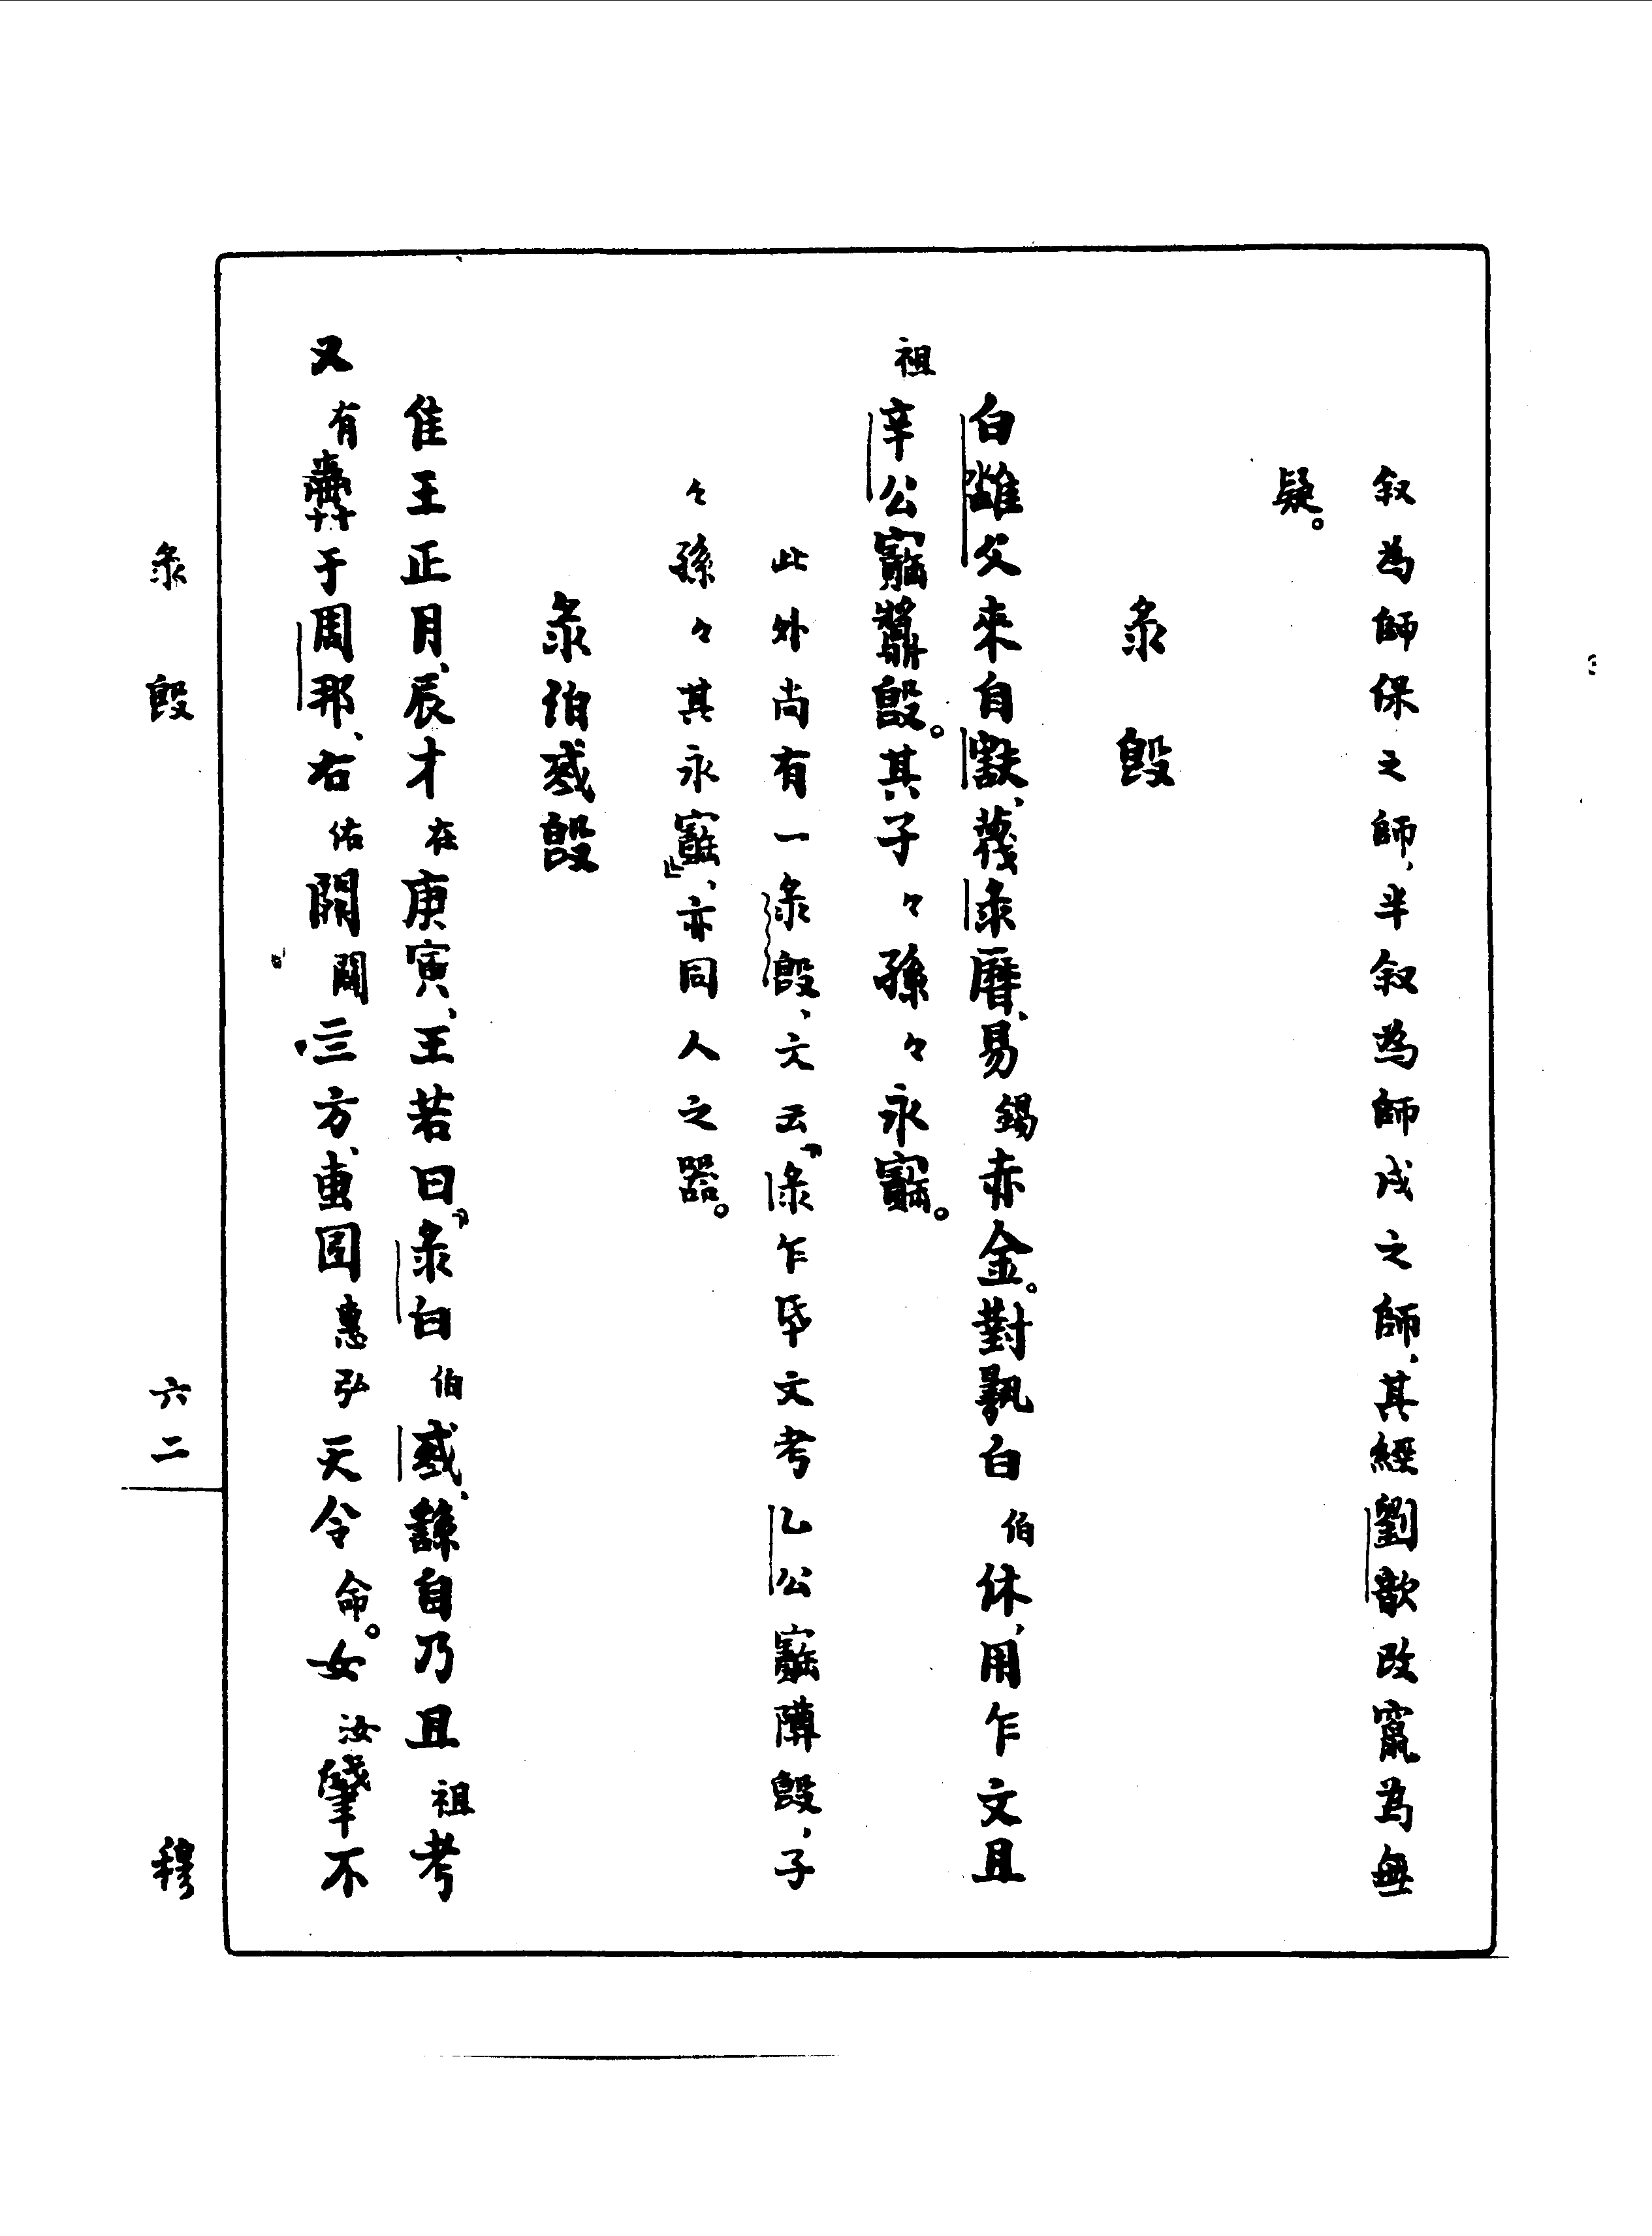 叙為師保之師，半叙為師戍之師，其經劉歆改竄為無
疑。
彔𣪘
白雝父來自㝬，蔑彔曆，易錫赤金。對白伯休，用乍文且
祖辛公𣪘。其子々孫々永。
此外尚有一彔𣪘，文云『彔乍氒文考乙公𣪘，子
々孫々其永』，亦同人之器。
彔伯𣪘
隹王正月，辰才在庚寅，王若曰『彔白伯，繇自乃且祖考
又有于周邦，右佑闢三方，叀惠弘天令命。女汝肈不
彔𣪘
六二
穆